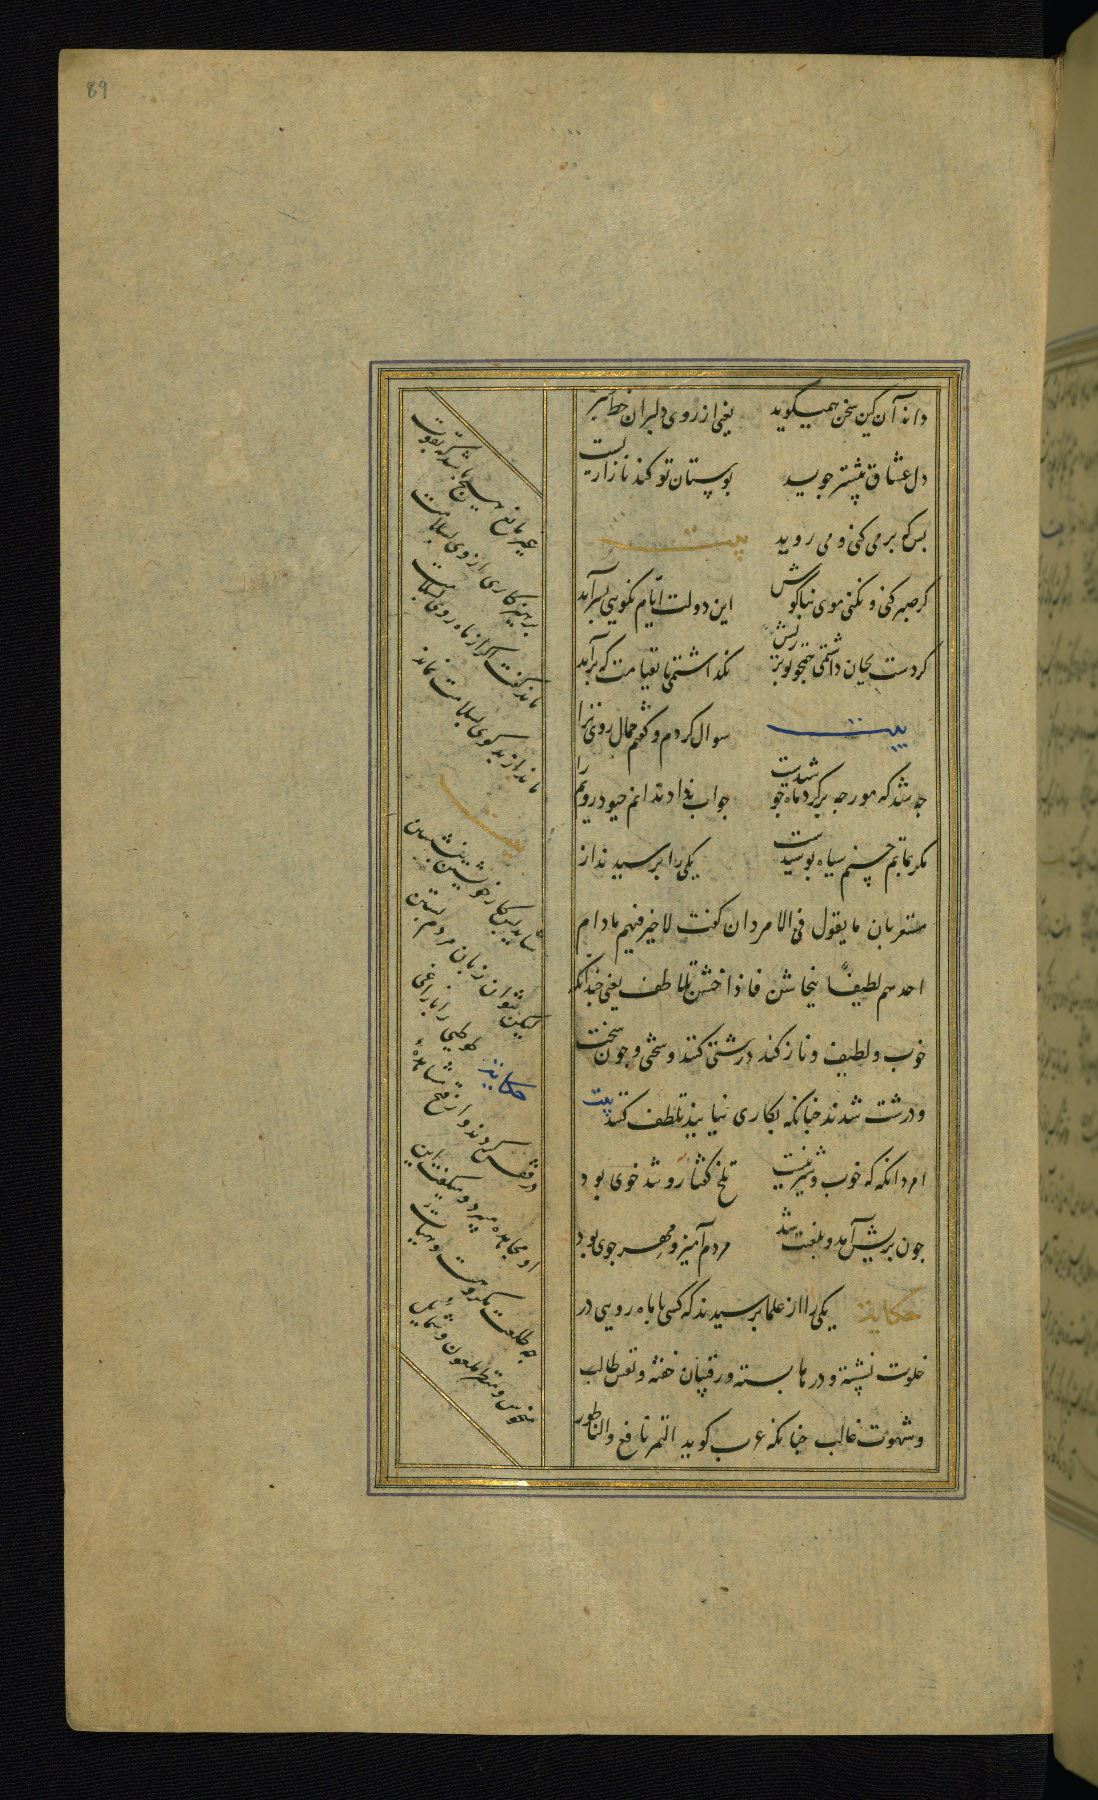 89
داند آن کین سخن همیگوید یعنی از روی دلبران خط سبز
دل عشاق بیشتر جوید بوستان تو گندنا زاریست
بس که بر می کنی و می روید بیت
گر صبر کنی و نکنی موی بناگوش این دولت ایام نکویی بسر آید
گر دست بجان داشتمی همچو تو بر ریش نگذاشتمی تا بقیامت که بر آید
بیت سوال کردم و گفتم جمال روی ترا
چه شد که مورچه بر گرد ماه جوشیدست جواب داد ندانم چه بود رویم را
مگر بماتم حسنم سیاه پوشیدست یکی را پرسیدند از
مستعربان ما یقول فی الامردان گفت لا خیر فیهم مادام
احدهم لطیفاً یتخاشن فاذا خشن تلاطف یعنی چندانکه
خوب و لطیف و نازکند درشتی کنند و سختی و چون سخت
و درشت شدند چنانکه بکاری نیایند تلطف کنند بیت
امرد آنگه که خوب و شیرینست تلخ گفتار و تند خوی بود
چون بریش آمد و بلعنت شد مردم آمیز و مهرجوی بود
حکایت یکی را از علما پرسیدند که کسی با ماه رویی در
خلوت نشسته و درها بسته و رقیبان خفته و نفس طالب
و شهوت غالب چنانکه عرب گوید التمر یانع والناطور
غیر مانع هیچ باشد که بقوت
پرهیزکاری از وی بسلامت
ماند گفت اگر از ماه روی بسلامت
ماند از بدگوی بسلامت نماند
بیت
شاید پس کار خویشتن بنشستن
لیکن نتوان زبان مردم بستن
حکایت طوطی را با زاغی
در قفس کردند و از قبح مشاهدهٔ
او مجاهده می برد و میگفت این
چه طلعت مکروهست و هیأت
ممقوت و منظر ملعون و شمایل